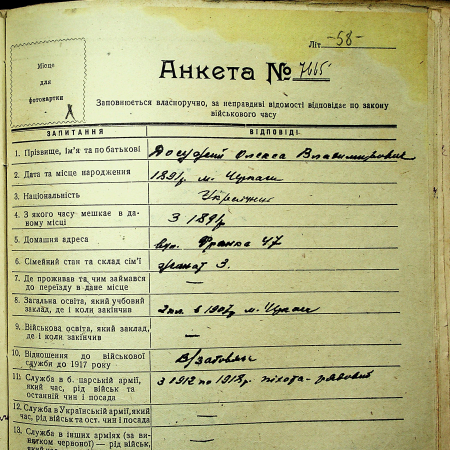 Літ. -58-
Місце
для
фотокартки
Анкета № 7665
Заповнюється власноручно, за неправдиві відомості відповідає по закону
військового часу
ЗАПИТАННЯ ВІДПОВІДІ
1. Прізвище, ім'я та по батькові Олекса Владимирович
2. Дата та місце народження 1891р. м.
3. Національність Українець
4. З якого часу мешкає в да-
ному місці З 1891р
5. Домашня адреса вул. Франка 47
6. Сімейний стан та склад сім'ї жонат 3.
7. Де проживав та чим займався
до переїзду в даве місце —
8. Загальна освіта, який учбовий
заклад, де і коли закінчив 2 кл. в 1907р м.
9. Військова освіта, який заклад,
де і коли закінчив —
10. Відношення до військової
служби до 1917 року
11. Служба в б. царській армії,
який час, рід військ та
останній чин і посада з 1912 по 1918р. піхота - рядовий
12. Служба в Українській армії, який
час, рід військ та ост. чин і посада —
13. Служба в інших арміях (за ви-
нятком червоної) — рід військ, —